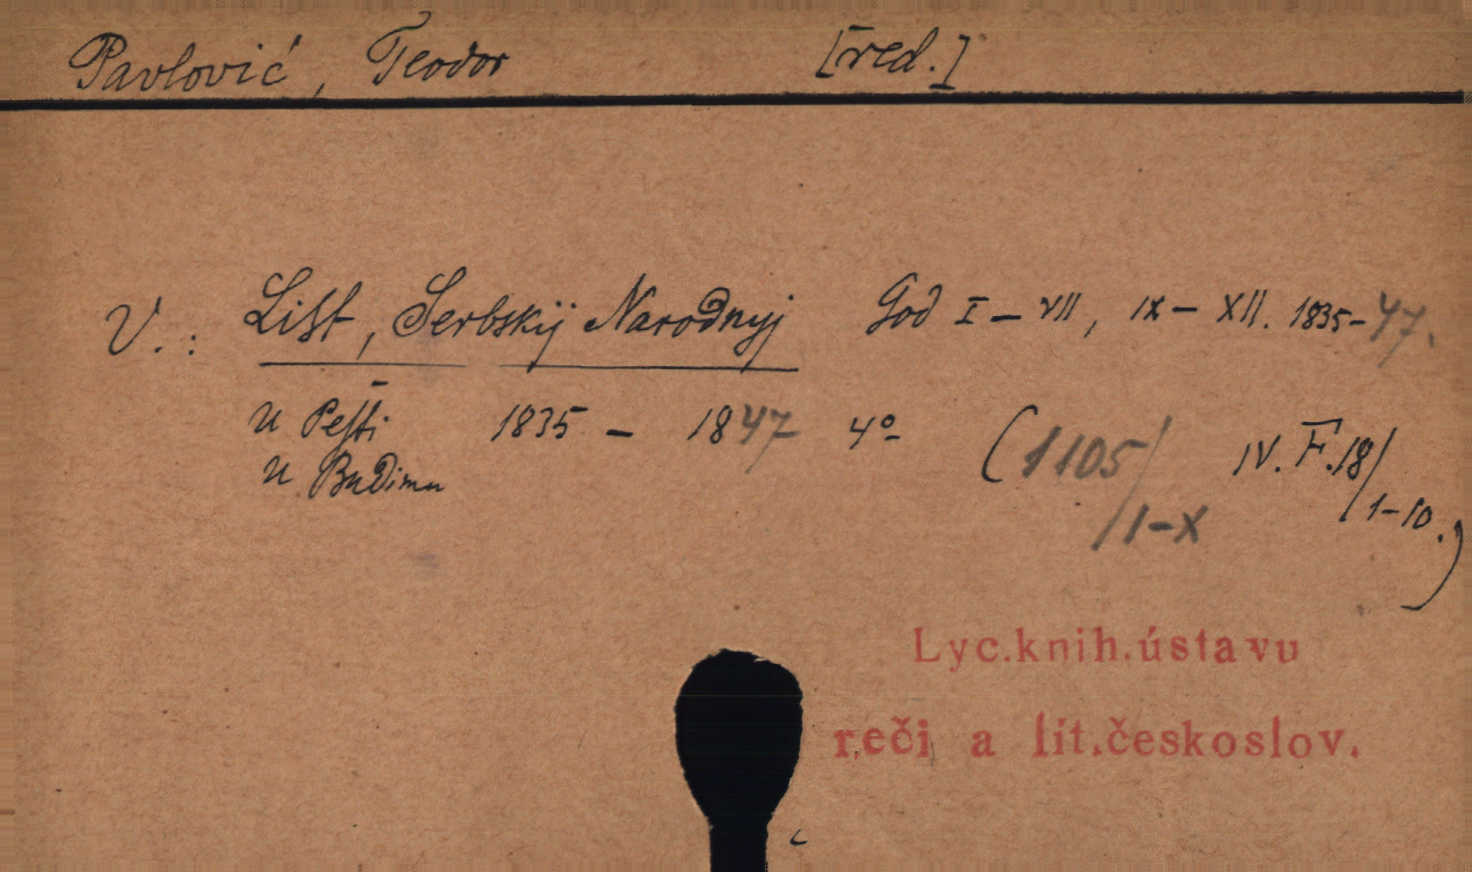 Pavlović, Teodor [red.]
V.: List, Serbskij Narodnyj God I – VII, IX – XII. 1835–47.
u Pešti 1835 – 1847 4º (1105/1–X IV. F. 18/1–10.)
u Budimu
Lyc.knih.ústavu
reči a lit.českoslov.